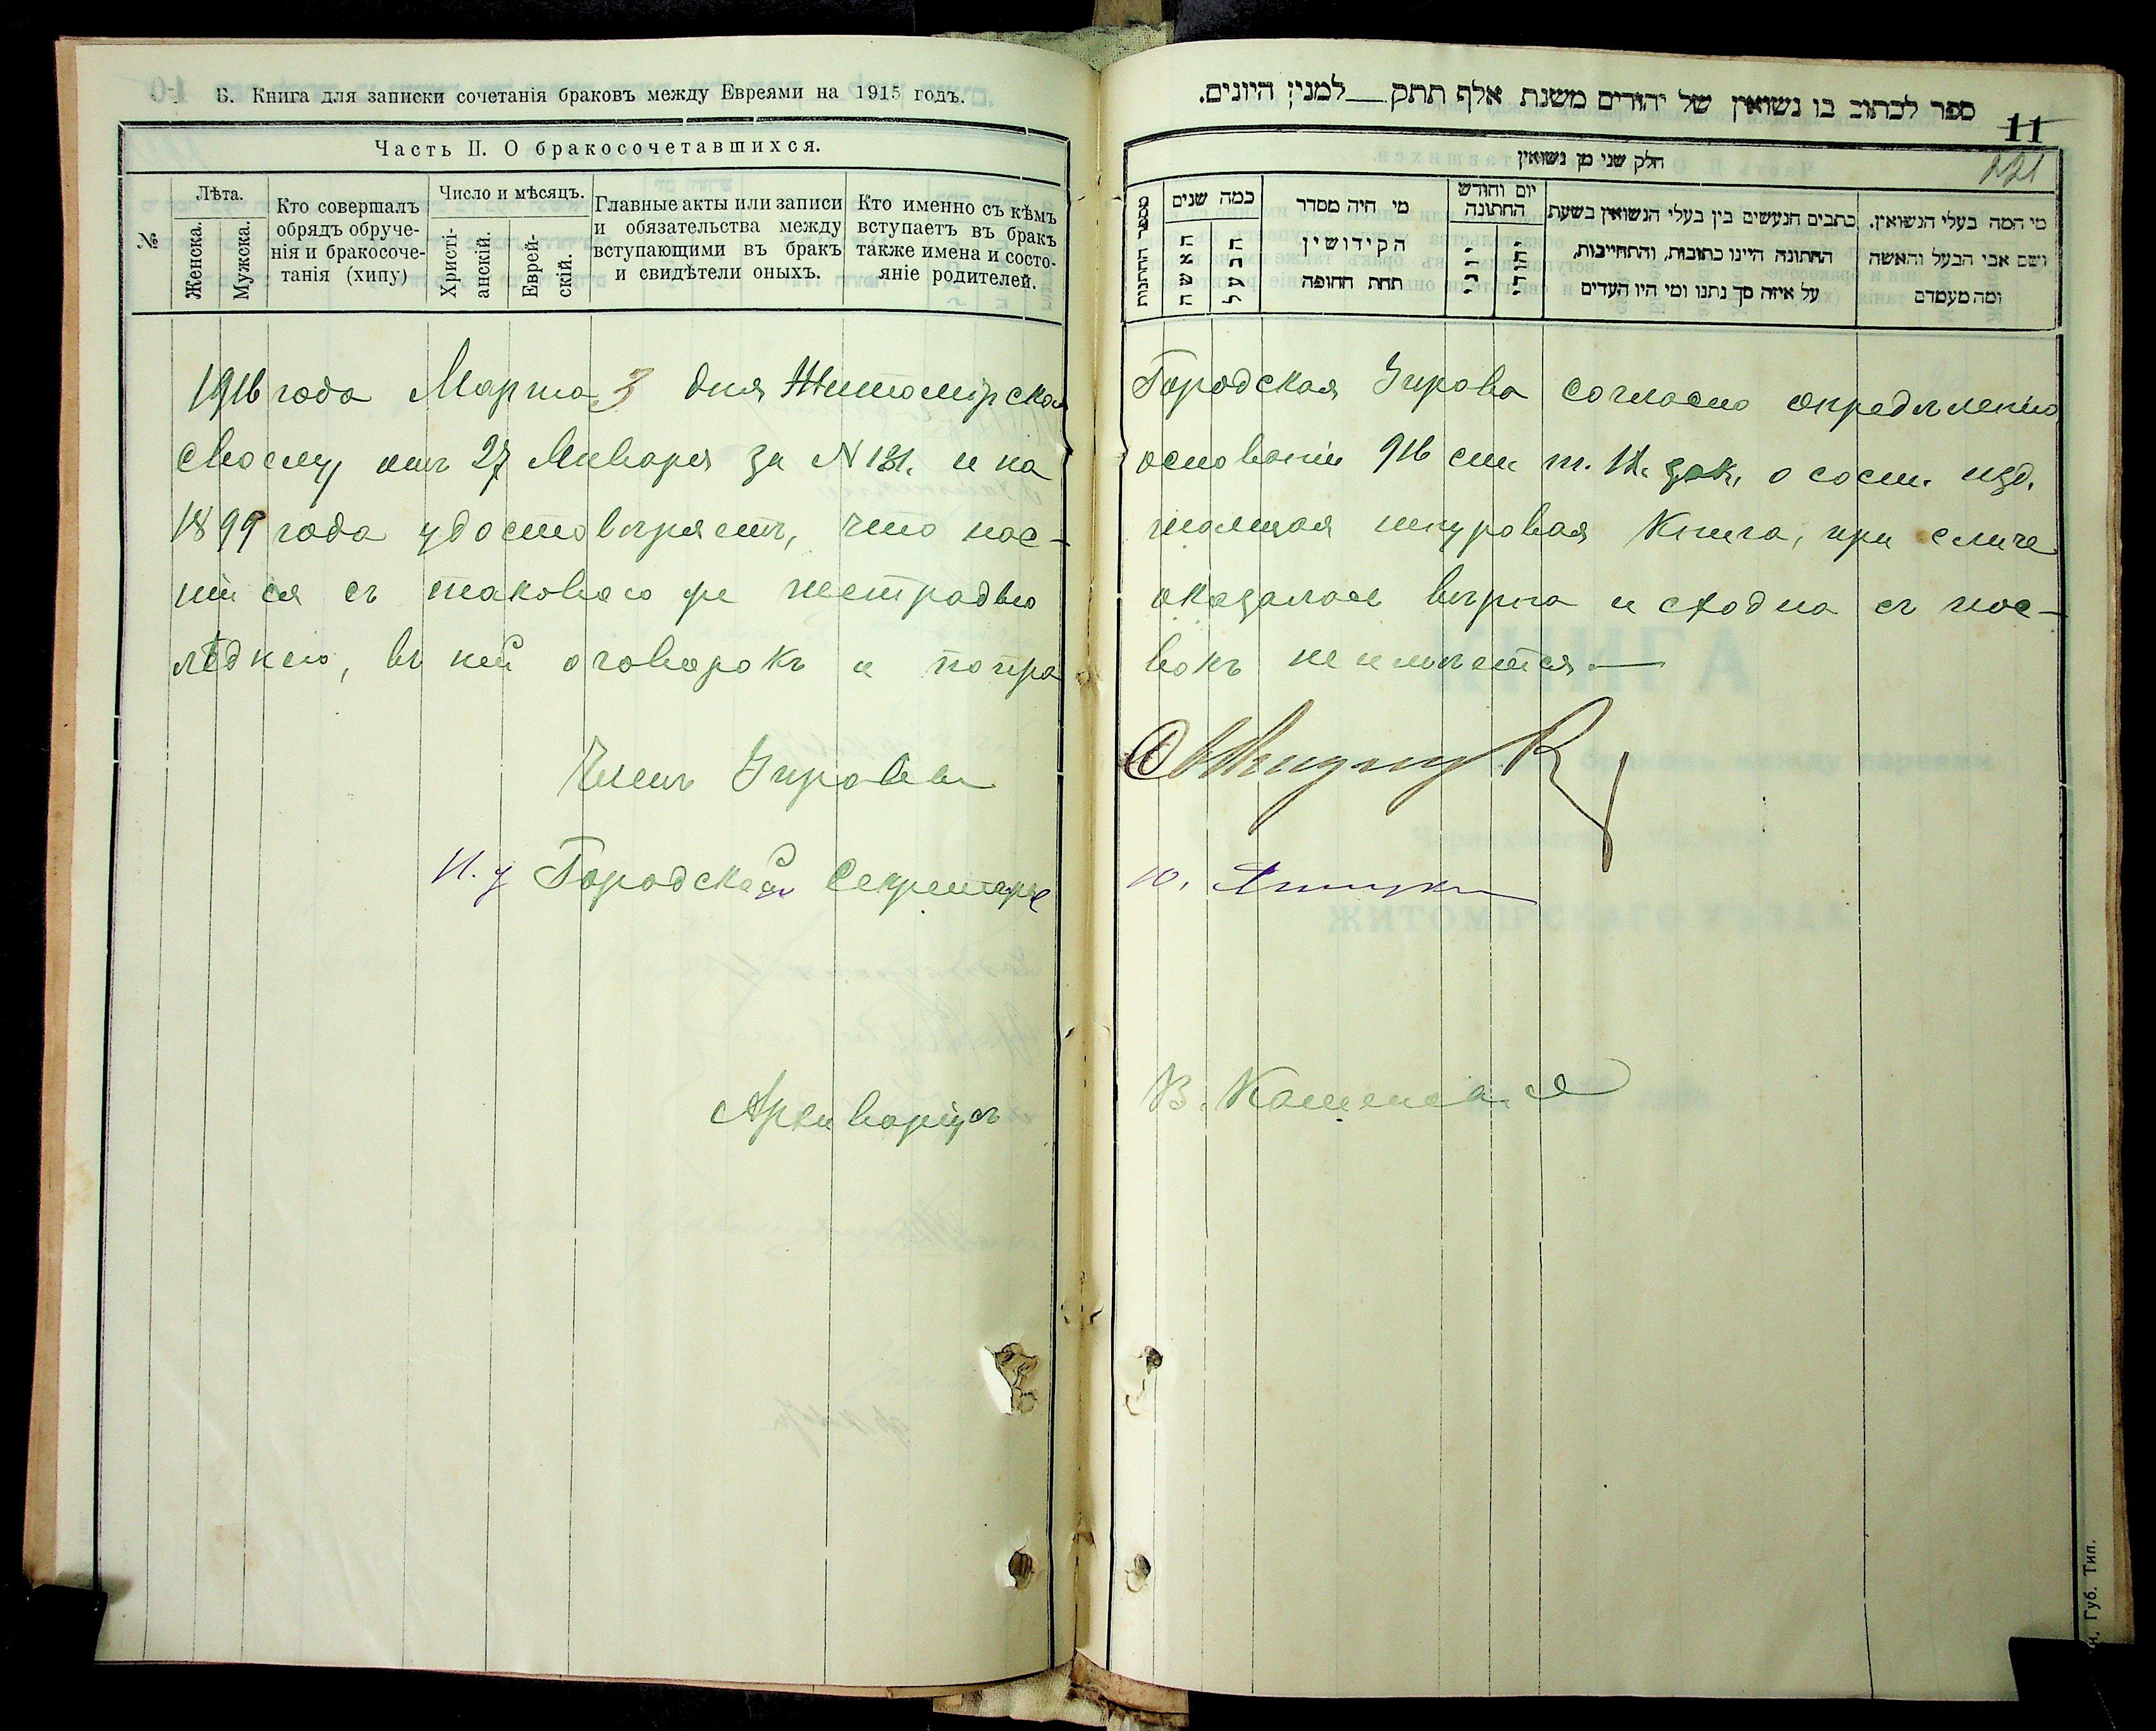 Б. Книга для записки сочетанія браковъ между Евреями на 1915 годъ.
Часть II. О бракосочетавшихся.
№
Лѣта.
Женска.
Мужска.
Кто совершалъ
обрядъ обруче-
нія и бракосоче-
танія (хипу)
Число и мѣсяцъ.
Христі-
анскій.
Еврей-
скій.
Главные акты или записи
и обязательства между
вступающими въ бракъ
и свидѣтели оныхъ.
Кто именно съ кѣмъ
вступаетъ въ бракъ
также имена и состо-
яніе родителей.
1916 года Марта 3 дня Житомірская
своему отъ 27 Января за N 131. и на
1899 года удостовѣряетъ, что нас-
ніи ея съ таковою же тетрадью
лѣднею, въ ней оговорокъ и попра
Членъ Управы
И. д Городской Секретарь
Архиваріусъ
ספר לכתוב בו נשואין של יהודים משנת אלף תתק__למנין היונים.
11
221
חלק שני מן נשואין
מספר החתונות
כמה שנים
האשה
הבעל
מי היה מסדר
הקידושין
תחת החופה
יום וחודש
החתונה
יוני
יהודי
כתבים הנעשים בין בעלי הנשואין בשעת
החתונה היינו כתובות, והתחייבות,
על איזה סך נתנו ומי היו העדים
מי המה בעלי הנשואין.
ושם אבי הבעל והאשה
ומה מעמדם
Городская Управа согласно опредѣленію
основаніи 916 ст. т. IX. зак. о сост. изд.
тоящая шнуровая Книга, при сличе
оказалась вѣрна и сходна съ пос-
вокъ не имѣется —
В. Каменская
н. Губ. Тип.